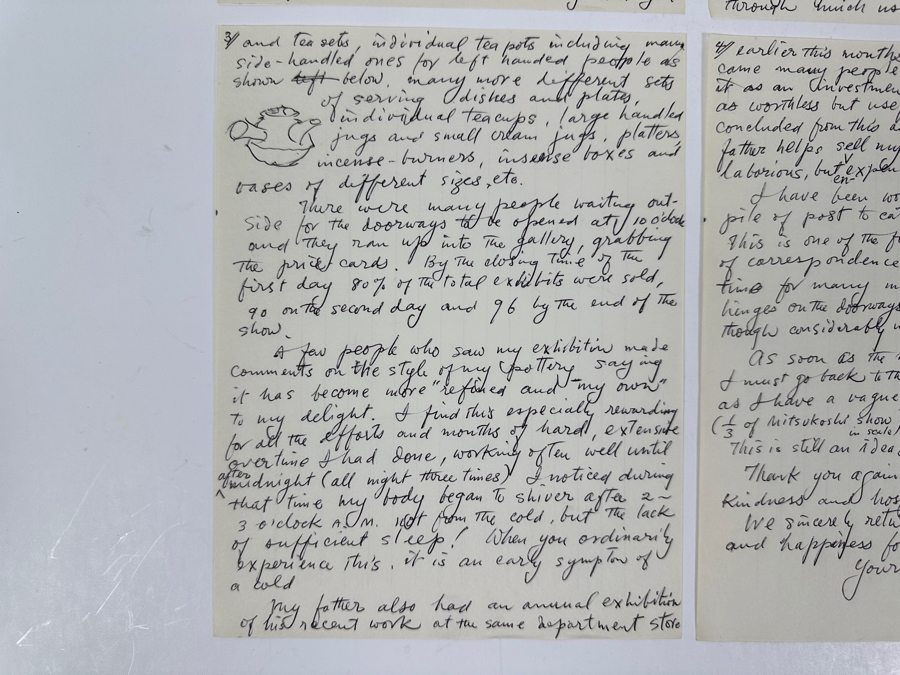 3/ and tea sets, individual tea pots including many
side-handled ones for left handed people as
shown below, many more different sets
of serving dishes and plates,
individual teacups, large handled
jugs and small cream jugs, platters
incense-burners, insense boxes and
vases of different sizes, etc.
There were many people waiting out-
side for the doorways to be opened at 10 o'clock
and they ran up into the gallery, grabbing
the price cards. By the closing time of the
first day 80% of the total exhibits were sold,
90 on the second day and 96 by the end of the
show.
A few people who saw my exhibition made
comments on the style of my pottery saying
it has become more "refined and "my own"
to my delight. I find this especially rewarding
for all the efforts and months of hard, extensive
overtime I had done, working often well until
after midnight (all night three times) I noticed during
that time my body began to shiver after 2~
3 o'clock A.M. not from the cold, but the lack
of sufficient sleep! When you ordinarily
experience this, it is an early symptom of
a cold
My father also had an annual exhibition
of his recent work at the same department store
through which
4/ earlier this month
came many people
it as an investmen
as worthless but use
concluded from this a
father helps sell my
laborious, but expen
I have been wo
pile of post to ca
This is one of the f
of correspondence
time for many m
hinges on the doorways
though considerably
As soon as the
I must go back to th
as I have a vague
(1/3 of Mitsukoshi show
in scale)
This is still an idea
Thank you again
kindness and hos
We sincerely retu
and happiness fo
Your